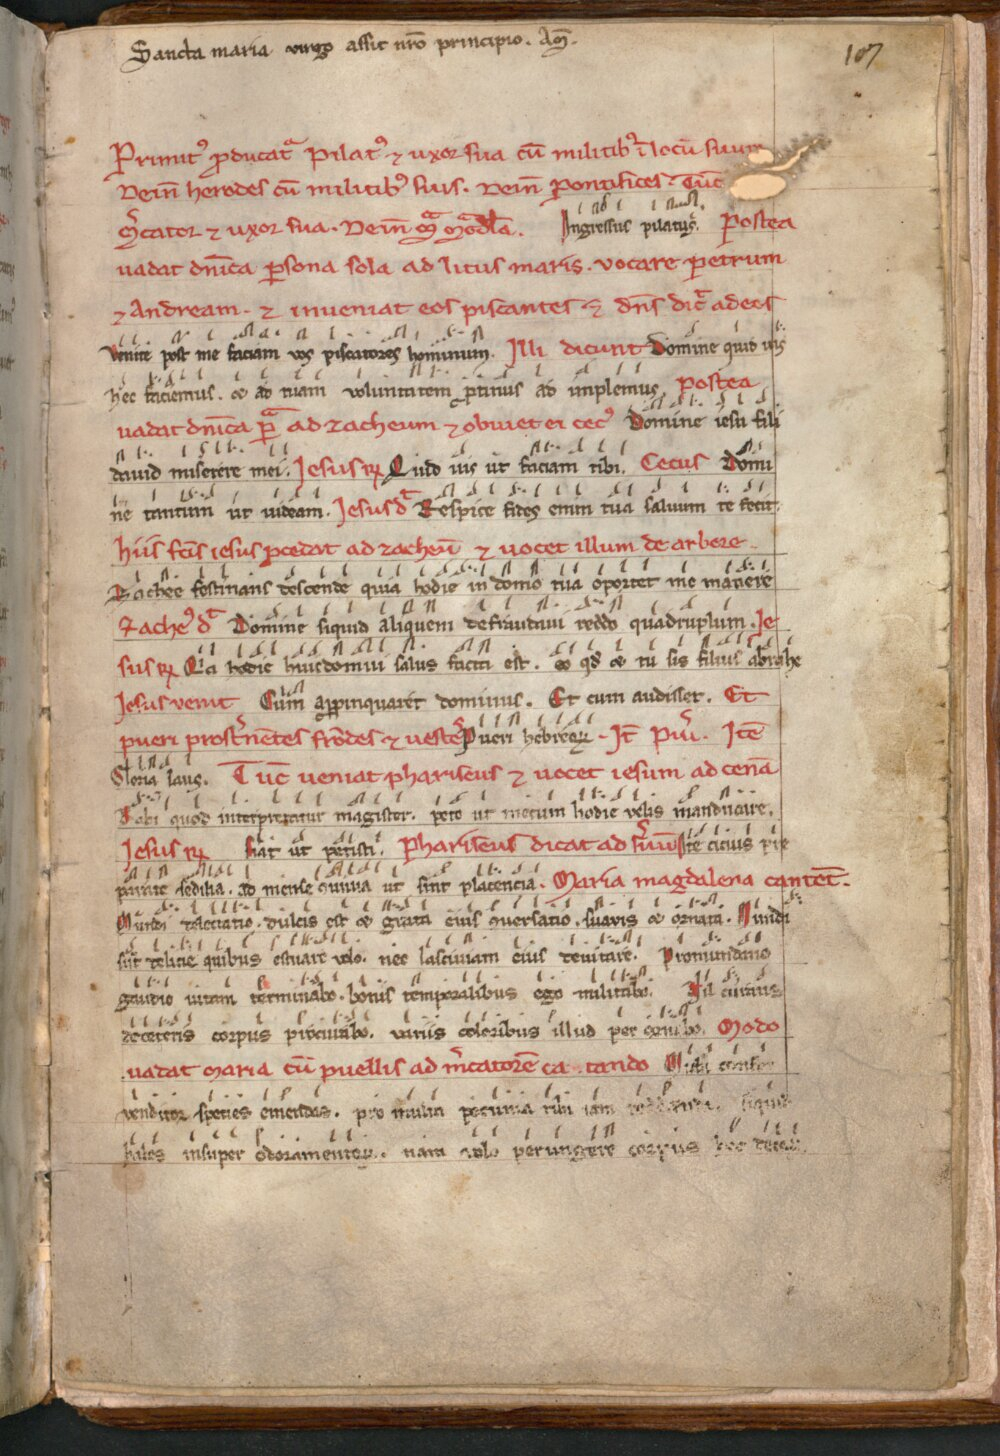 Sancta maria virgo assit nro principio. Am̅.
107
Primitꝰ ꝓducat᷑ Pilatꝰ ⁊ uxor sua cū militibꝰ ī locū suum
Dein̄ herodes cū militibꝰ suis. Dein̄ pontifices. Tūc
m̄cator ⁊ uxor sua. Dein̄ mᷓ magdl̄a. Ingressus pilatus. Postea
uadat dn̄ica ꝑsona sola ad litus maris. vocare petrum
⁊ Andream. ⁊ inueniat eos piscantes. ⁊ dn̄s dic̄ ad eos
Venite post me faciam vos piscatores hominum. Illi dicunt Domine quid uis
hec faciemus. et ad tuam voluntatem ꝓtinus ad implemus. Postea
uadat dn̄ica ꝑᷓ ad zacheum ⁊ obuiet ei cecꝰ Domine iesu fili
dauid miserere mei. Iesus ꝶ Quid uis ut faciam tibi. Cecus Domi
ne tantum ut uideam. Iesus dᷓ Respice fides enim tua saluum te fecit.
Hiis fc̄is iesus ꝓcedat ad zacheū ⁊ uocet illum de arbore
Zachee festinans descende quia hodie in domo tua oportet me manere
Zacheꝰ dᷓ Domine siquid aliquem defraudaui reddo quadruplum. Ie
sus ꝶ Qia hodie huic domui salus facta est. eo qd̄ et tu sis filius abrahe
Iesus venit Cum appinquaret dominus. Et cum audisset. Et
pueri prost̄nentes frōdes ⁊ uestes Pueri hebreoꝝ. It̄ Pūi. Itē
Gloria laus. Tūc ueniat phariseus ⁊ uocet iesum ad cenā
Rabi quod interpretatur magister. peto ut mecum hodie velis manducare.
Iesus ꝶ fiat ut petisti. Phariseus dicat ad s̄uū Ite cicius pre
parate sedilia. ad mense conuiuia ut sint placencia. Maria magdalena cantet.
Mundi delectatio. dulcis est et grata eius ꝯuersatio. suavis et ornata. Mundi
sūt delicie quibus estuare volo. nec lasciuiam eius deuitare. Pro mundano
gaudio uitam terminabo. bonis temporalibus ego militabo. Nil curans
de ceteris corpus procurabo. variis coloribus illud perornabo. Modo
uadat Maria cū puellis ad m̄catorē cantando Michi confer
venditor species emendas. pro multa pecunia tibi iam reddenda. siquid
habes insuper odoramentoꝝ. nam volo perungere corpus hoc decoꝝ